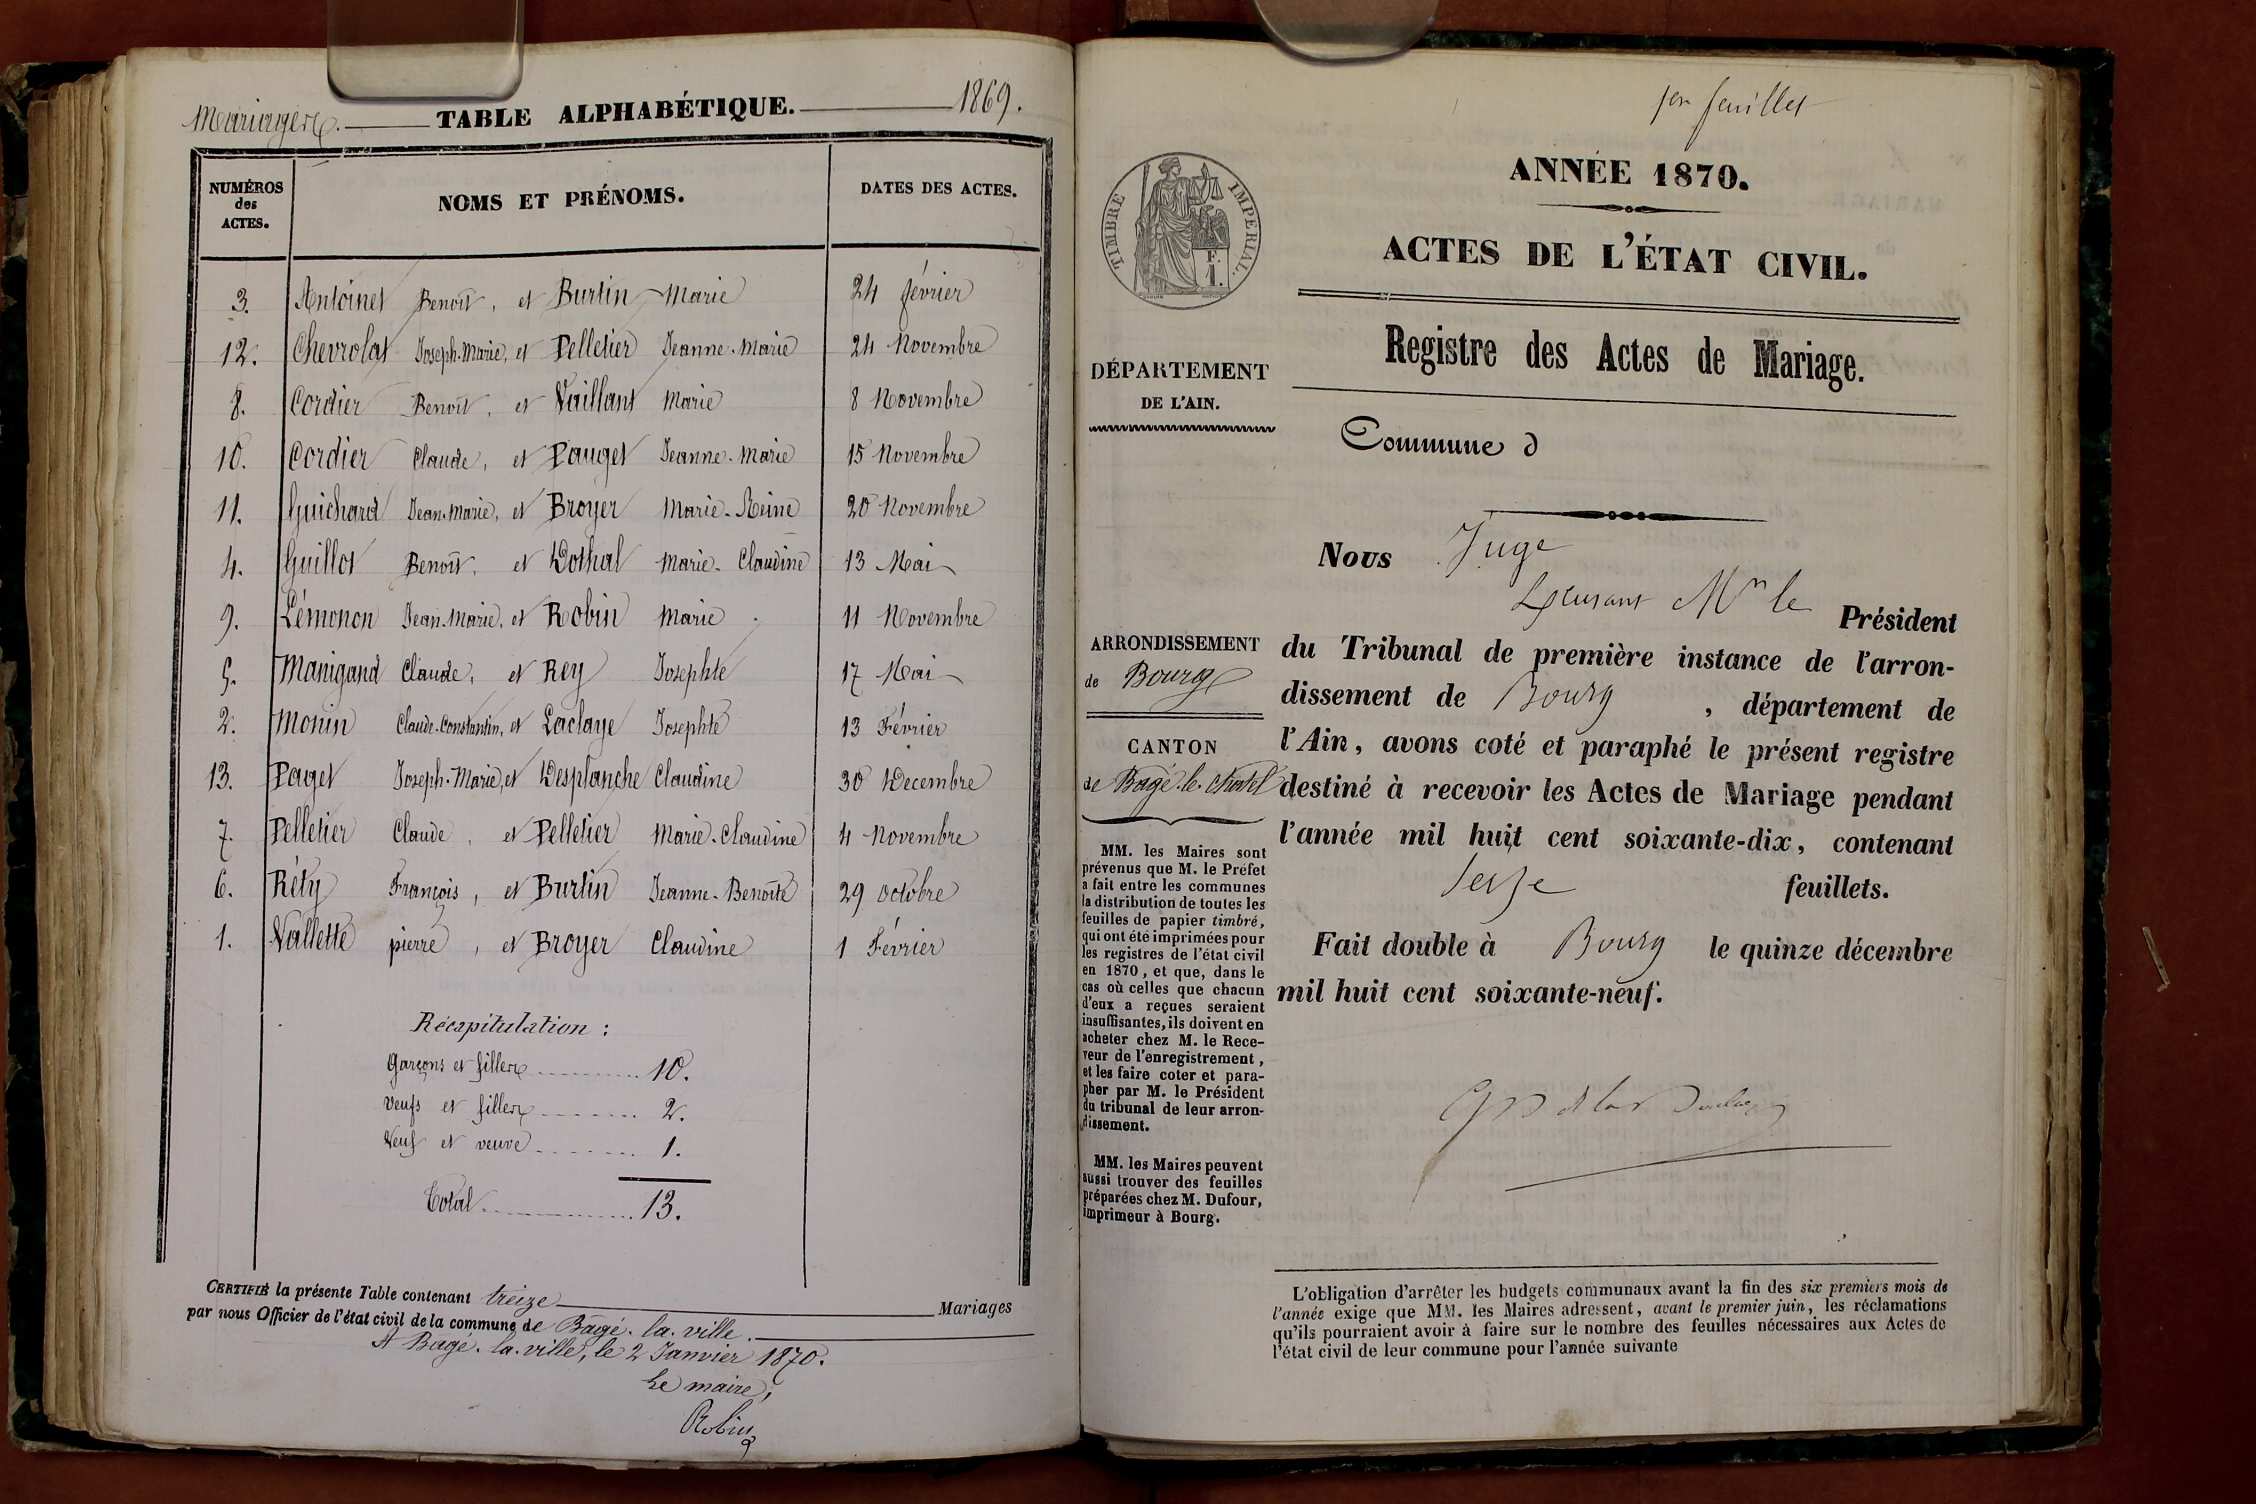 Mariages. TABLE ALPHABÉTIQUE. 1869.
NUMÉROS des ACTES. NOMS ET PRÉNOMS. DATES DES ACTES.
3. Antoinet Benoît, et Burtin Marie 24 février
12. Chevrolat Joseph-Marie, et Pelletier Jeanne-Marie 24 Novembre
8. Cordier Benoît, et Vaillant Marie 8 Novembre
10. Cordier Claude, et Pauget Jeanne-Marie 15 Novembre
11. Guichard Jean-Marie, et Broyer Marie-Reine 20 Novembre
4. Guillot Benoît, et Dothal Marie-Claudine 13 Mai
9. Lémonon Jean-Marie, et Robin Marie 11 Novembre
5. Manigand Claude, et Rey Josephte 17 Mai
2. Monin Claude-Constantin, et Laclaye Josephte 13 Février
13. Paget Joseph-Marie, et Desplanche Claudine 30 Décembre
7. Pelletier Claude, et Pelletier Marie-Claudine 4 Novembre
6. Réty François, et Burtin Jeanne-Benoîte 29 octobre
1. Vallette pierre, et Broyer Claudine 1 Février
Récapitulation :
Garçons et filles 10.
Veufs et filles 2.
Veuf et veuve 1.
Total 13.
CERTIFIÉ la présente Table contenant treize Mariages
par nous Officier de l'état civil de la commune de Bagé-la-ville.
A Bagé-la-ville, le 2 Janvier 1870.
Le maire,
Robin
1er feuillet
ANNÉE 1870.
ACTES DE L'ÉTAT CIVIL.
Registre des Actes de Mariage.
Commune d
TIMBRE IMPÉRIAL.
F.
1.
DÉPARTEMENT
DE L'AIN.
ARRONDISSEMENT
de Bourg
CANTON
de Bagé-le-Chatel
MM. les Maires sont
prévenus que M. le Préfet
a fait entre les communes
la distribution de toutes les
feuilles de papier timbré,
qui ont été imprimées pour
les registres de l'état civil
en 1870, et que, dans le
cas où celles que chacun
d'eux a reçues seraient
insuffisantes, ils doivent en
acheter chez M. le Rece-
veur de l'enregistrement,
et les faire coter et para-
pher par M. le Président
du tribunal de leur arron-
dissement.
MM. les Maires peuvent
aussi trouver des feuilles
préparées chez M. Dufour,
imprimeur à Bourg.
Nous Juge
Mr le Président
du Tribunal de première instance de l'arron-
dissement de Bourg, département de
l'Ain, avons coté et paraphé le présent registre
destiné à recevoir les Actes de Mariage pendant
l'année mil huit cent soixante-dix, contenant
seize feuillets.
Fait double à Bourg le quinze décembre
mil huit cent soixante-neuf.
L'obligation d'arrêter les budgets communaux avant la fin des six premiers mois de
l'année exige que MM. les Maires adressent, avant le premier juin, les réclamations
qu'ils pourraient avoir à faire sur le nombre des feuilles nécessaires aux Actes de
l'état civil de leur commune pour l'année suivante